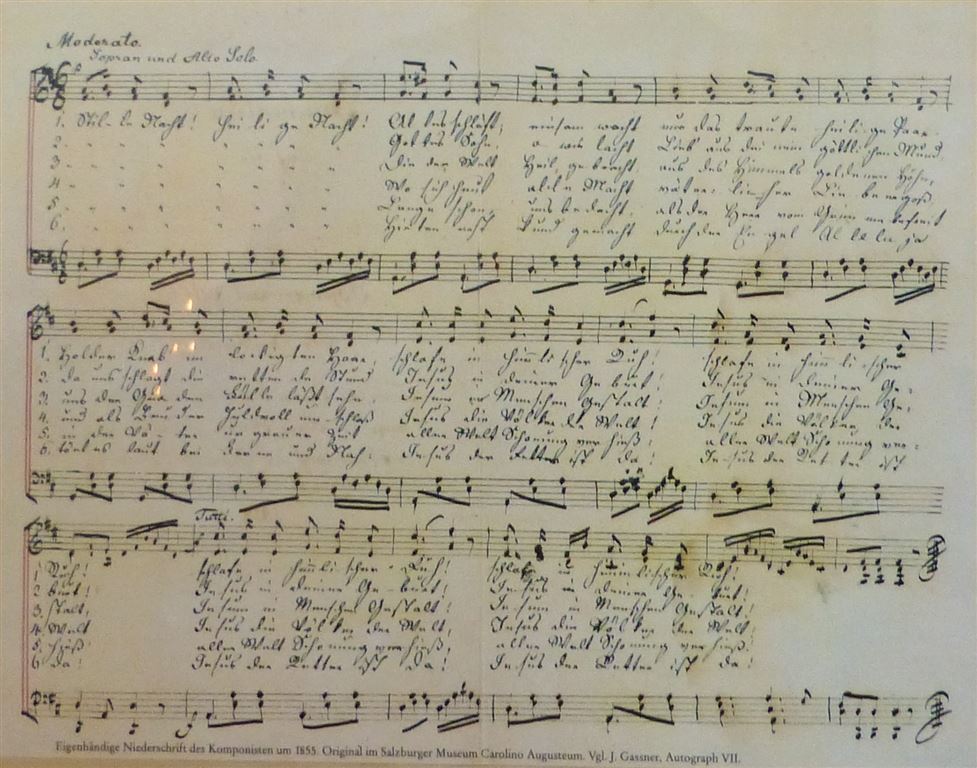 Moderato.
Sopran und Alto Solo.
1. Stil-le Nacht! heilige Nacht! Alles schläft; einsam wacht nur das traute heilige Paar.
2. " " " " " " Gottes Sohn, o wie lacht Lieb aus deinem göttlichen Mund
3 " " " " " " Die der Welt Heil gebracht, aus des Himmels goldenen Höhn,
4 " " " " " " Wo sich heut alle Macht väterlicher Liebe ergoß
5 " " " " " " Lange schon uns bedacht, als der Herr vom Grimme befreit
6. " " " " " " Hirten erst kund gemacht durch der Engel Alleluja
1. Holder Knab im lockigten Haare, schlafe in himmlischer Ruh! schlafe in himmlischer
2. da uns schlägt die rettende Stund Jesus in deiner Geburt! Jesus in deiner Ge-
3. uns der Gnaden Fülle läßt sehn, Jesum in Menschen Gestalt! Jesum in Menschen Ge,
4. und als Bruder huldvoll umschloß Jesus die Völker der Welt! Jesus die Völker der
5. in der Väter urgrauer Zeit aller Welt Schonung verhieß! aller Welt Schonung ver-
6. tönt es laut bei Ferne und Nah: Jesus der Retter ist da! Jesus der Retter ist
Tutti.
1 Ruh! schlafe in himmlischer Ruh! schlafe in himmlischer Ruh!
2 burt! Jesus in deiner Geburt! Jesus in deiner Geburt!
3. stalt, Jesum in Menschen Gestalt! Jesum in Menschen Gestalt!
4. Welt Jesus die Völker der Welt, Jesus die Völker der Welt,
5. hieß aller Welt Schonung verhieß, aller Welt Schonung verhieß.
6 da! Jesus der Retter ist da! Jesus der Retter ist da!
Eigenhändige Niederschrift des Komponisten um 1855. Original im Salzburger Museum Carolino Augusteum. Vgl. J. Gassner, Autograph VII.